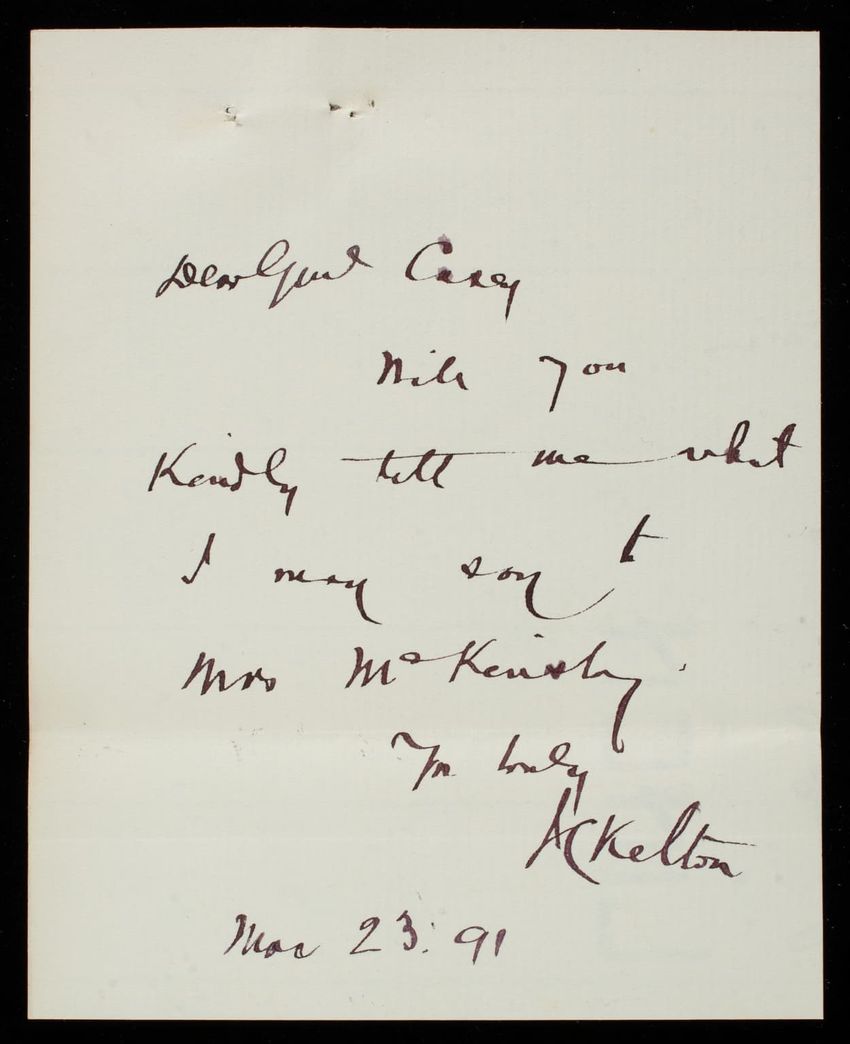 Dear Genl Casey
Will you
Kindly tell me what
I may say to
Mrs McKinsty.
Yrs truly
ACKelton
Mar 23. 91